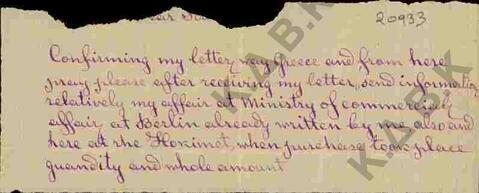 20933
Confirming my letter way Greece and from here
pray please after receiving my letter, send information
relatively my affair at Ministry of commercialy
affair at Berlin already written by me also and
here at the Hoximet, when purchase took place
quandity and whole amount
K.A.B.K
K.A.B.K